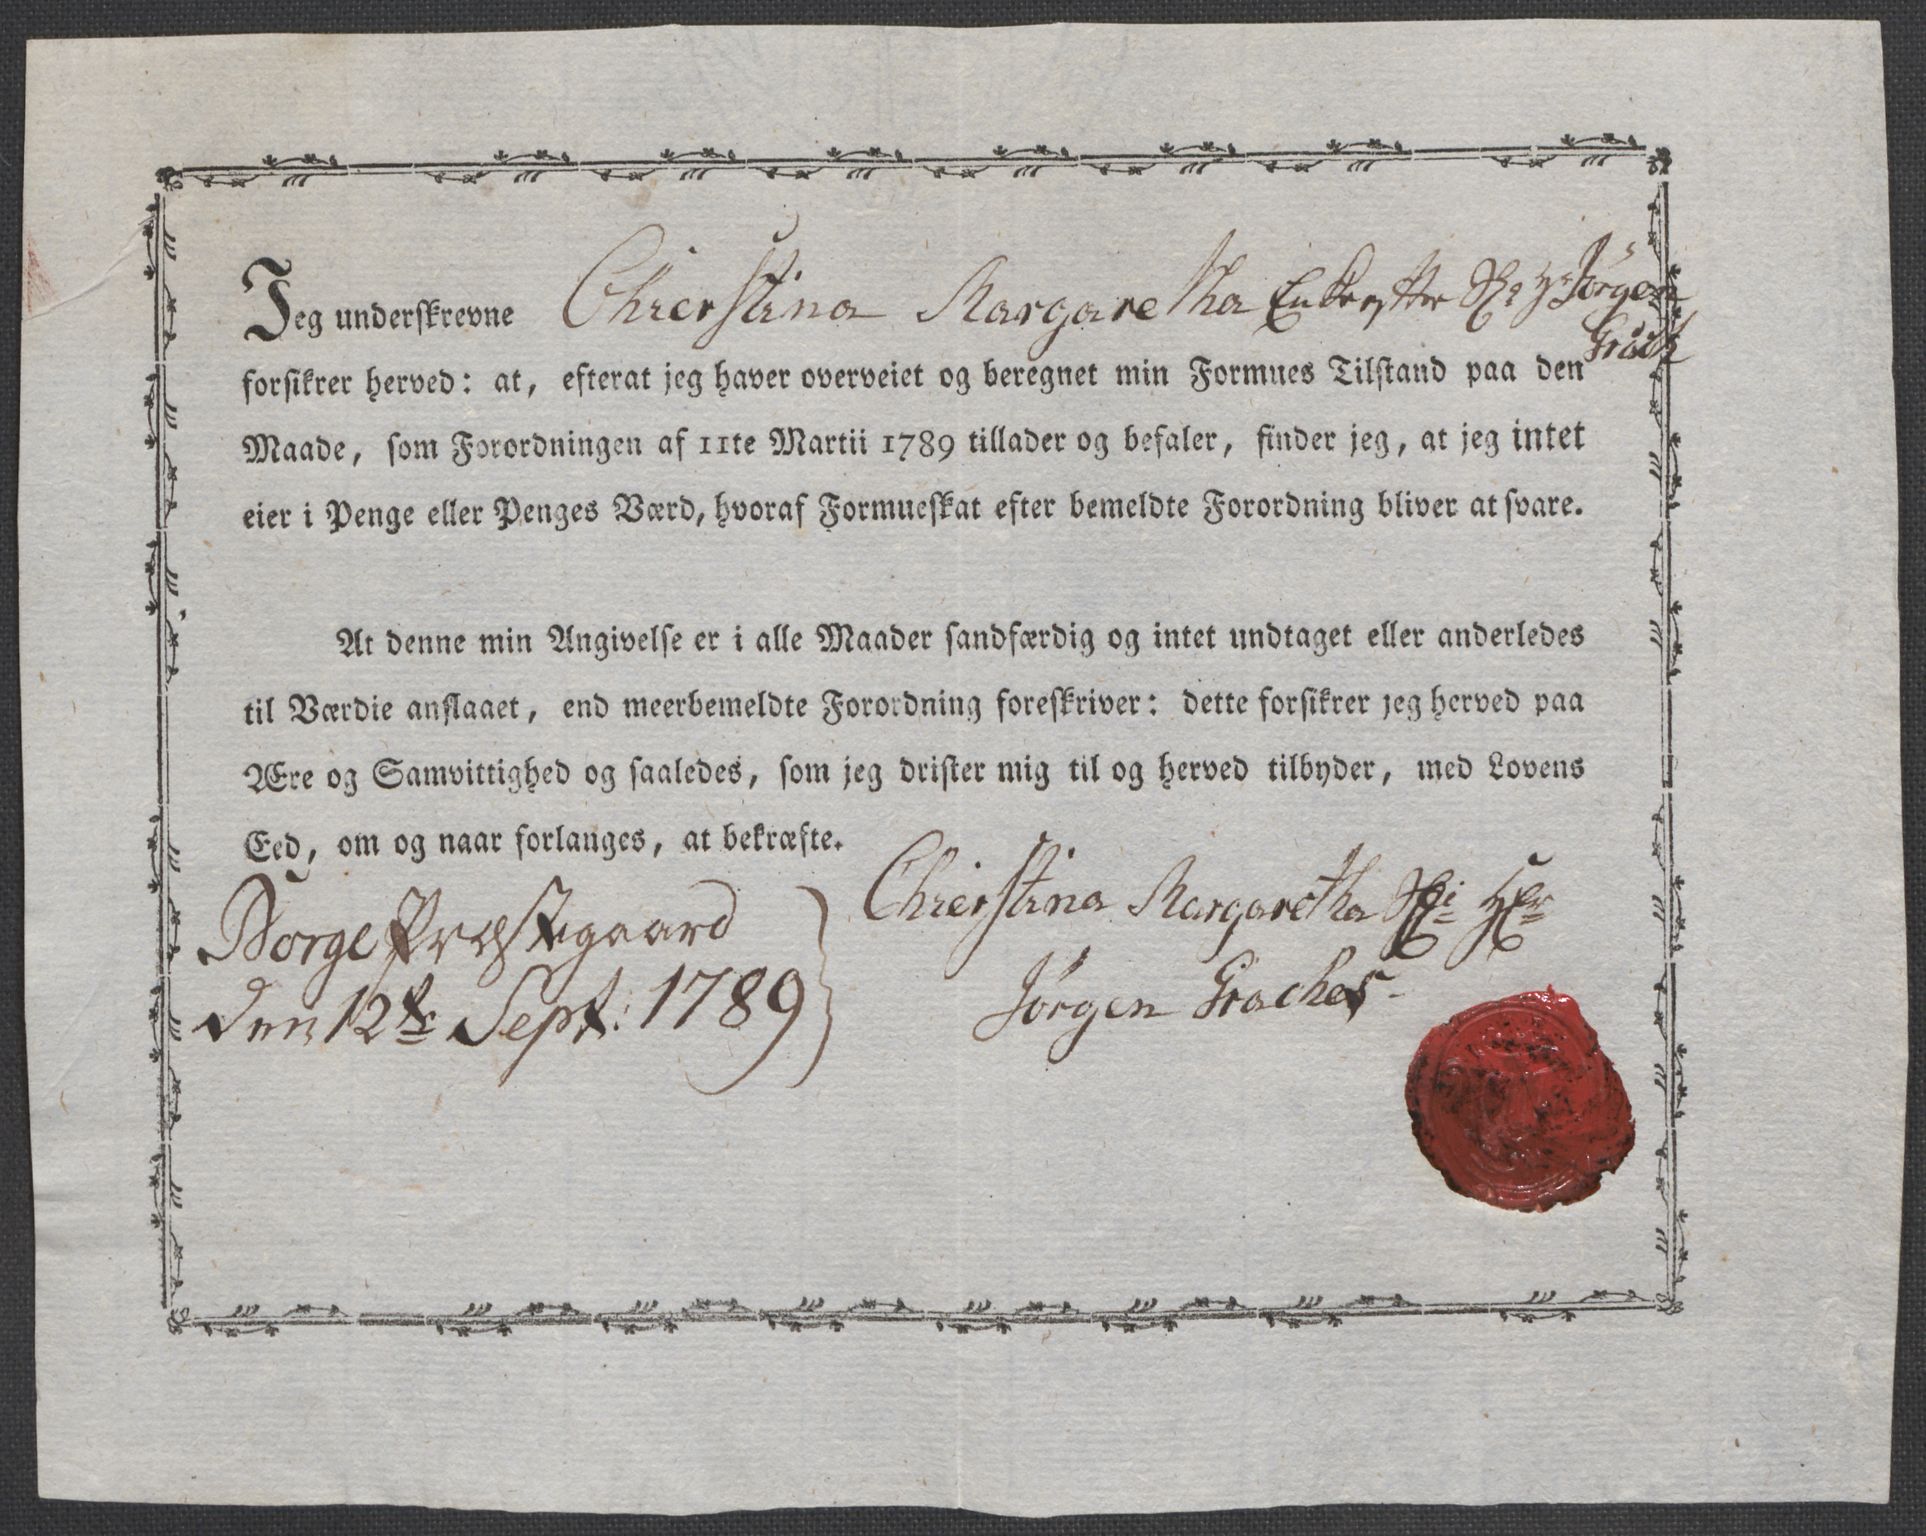 Jeg underskrevne Chierstina Margaretha Enke efter Sl: Hr Jörgen
Grach
forsikrer herved: at, efterat jeg haver overveiet og beregnet min Formues Tilstand paa den
Maade, som Forordningen af 11te Martii 1789 tillader og befaler, finder jeg, at jeg intet
eier i Penge eller Penges Værd, hvoraf Formueskat efter bemeldte Forordning bliver at svare.
At denne min Angivelse er i alle Maader sandfærdig og intet undtaget eller anderledes
til Værdie anslaaet, end meerbemeldte Forordning foreskriver: dette forsikrer jeg herved paa
Ære og Samvittighed og saaledes, som jeg drister mig til og herved tilbyder, med Lovens
Eed, om og naar forlanges, at bekræfte.
Borge Præstegaard
den 12te Sept: 1789
Chierstina Margaretha Sl: Her
Jörgen Graches